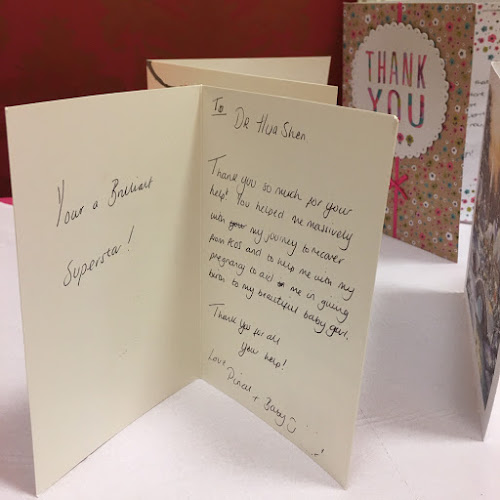 Your a Brilliant
Superstar!
To
Dr Hua Shen
Thank you so much for your
help! You helped me massively
with my journey to recover
from PCOS and to help me with my
pregnancy to aid me in giving
birth to my beautiful baby girl.
Thank you for all
your help!
Love
+ Baby
THANK
YOU